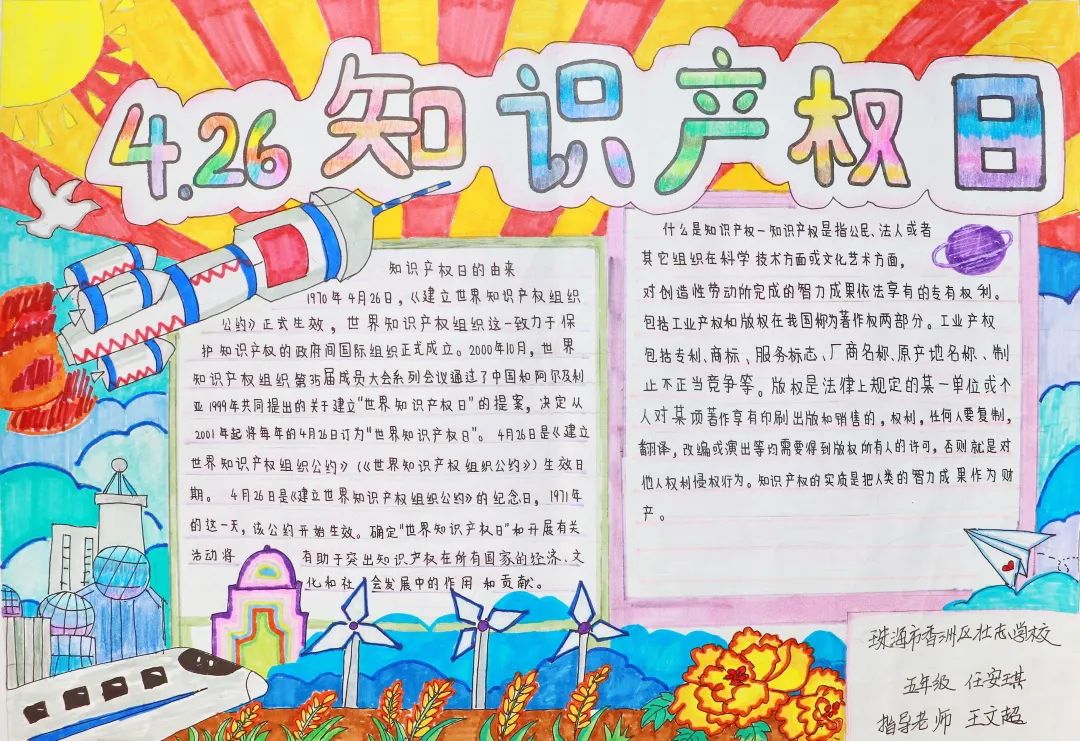 4.26 知识产权日
知识产权日的由来
1970年4月26日，《建立世界知识产权组织
公约》正式生效，世界知识产权组织这一致力于保
护知识产权的政府间国际组织正式成立。2000年10月，世界
知识产权组织第35届成员大会系列会议通过了中国和阿尔及利
亚1999年共同提出的关于建立“世界知识产权日”的提案，决定从
2001年起将每年的4月26日订为“世界知识产权日”。4月26日是《建立
世界知识产权组织公约》（《世界知识产权组织公约》）生效日
期。4月26日是《建立世界知识产权组织公约》的纪念日，1971年
的这一天，该公约开始生效。确定“世界知识产权日”和开展有关
活动将 有助于突出知识产权在所有国家的经济、文
化和社会发展中的作用和贡献。
什么是知识产权－知识产权是指公民、法人或者
其它组织在科学技术方面或文化艺术方面，
对创造性劳动所完成的智力成果依法享有的专有权利。
包括工业产权和版权在我国称为著作权两部分。工业产权
包括专利、商标、服务标志、厂商名称、原产地名称、制
止不正当竞争等。版权是法律上规定的某一单位或个
人对某项著作享有印刷出版和销售的，权利，任何人要复制，
翻译，改编或演出等均需要得到版权所有人的许可，否则就是对
他人权利侵权行为。知识产权的实质是把人类的智力成果作为财
产。
珠海市香洲区杜志学校
五年级 任安琪
指导老师 王文超